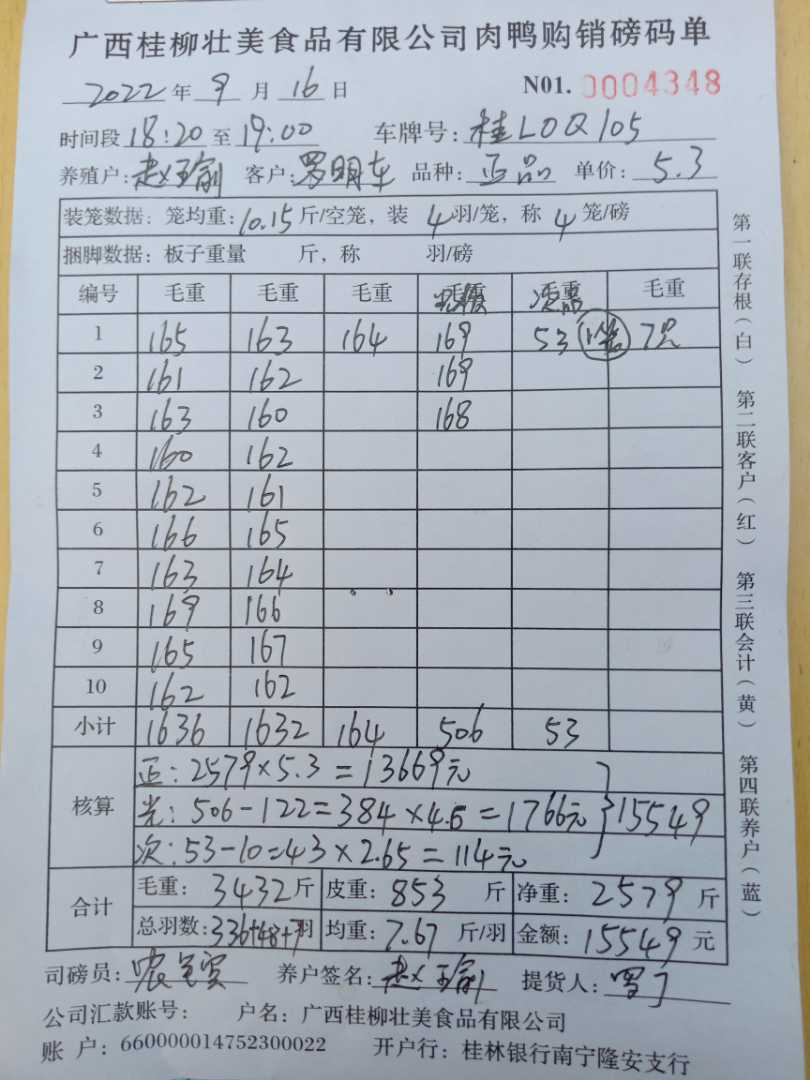 广西桂柳壮美食品有限公司肉鸭购销磅码单
2022 年 9 月 16 日 N01. 0004348
时间段 18:20 至 19:00 车牌号: 桂L0Q105
养殖户: 赵玉俞 客户: 罗明车 品种: 正品 单价: 5.3
装笼数据: 笼均重: 10.15 斤/空笼, 装 4 羽/笼, 称 4 笼/磅
捆脚数据: 板子重量 斤, 称 羽/磅
编号 毛重 毛重 毛重 毛重 次品 毛重
1 165 163 164 169 53 1笼 7只
2 161 162 169
3 163 160 168
4 160 162
5 162 161
6 166 165
7 163 164
8 169 166
9 165 167
10 162 162
小计 1636 1632 164 506 53
核算 正: 2579×5.3=13669元
光: 506-122=384×4.6=1766元 } 15549
次: 53-10=43×2.65=114元
合计 毛重: 3432 斤 皮重: 853 斤 净重: 2579 斤
总羽数: 336+48+7 羽 均重: 7.67 斤/羽 金额: 15549 元
司磅员: 养户签名: 提货人:
公司汇款账号: 户名: 广西桂柳壮美食品有限公司
账 户: 660000014752300022 开户行: 桂林银行南宁隆安支行
第一联存根(白) 第二联客户(红) 第三联会计(黄) 第四联养户(蓝)